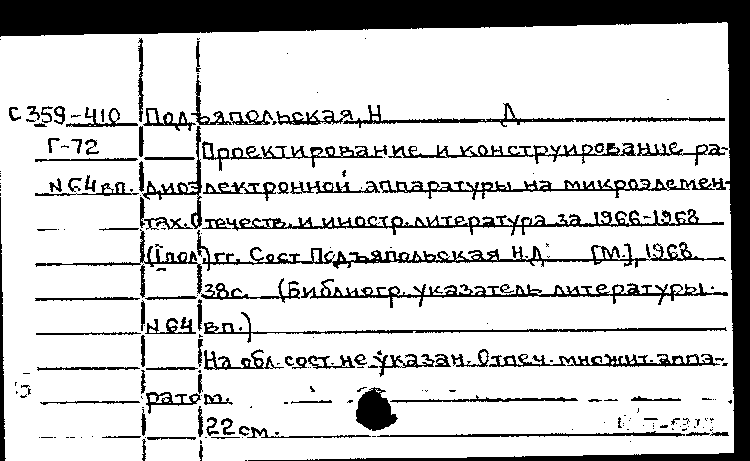 С359-410 Подъяпольская, Н Д
Г-72 Проектирование и конструирование ра-
N64вп. диоэлектронной аппаратуры на микроэлемен-
тах. Отечеств. и иностр. литература за 1966-1968
(Iпол.) гг. Сост Подъяпольская Н.Д. [М.], 1968.
38с. (Библиогр. указатель литературы.
N64 вп.)
На обл. сост. не указан. Отпеч. множит. аппа-
ратом.
22 см.